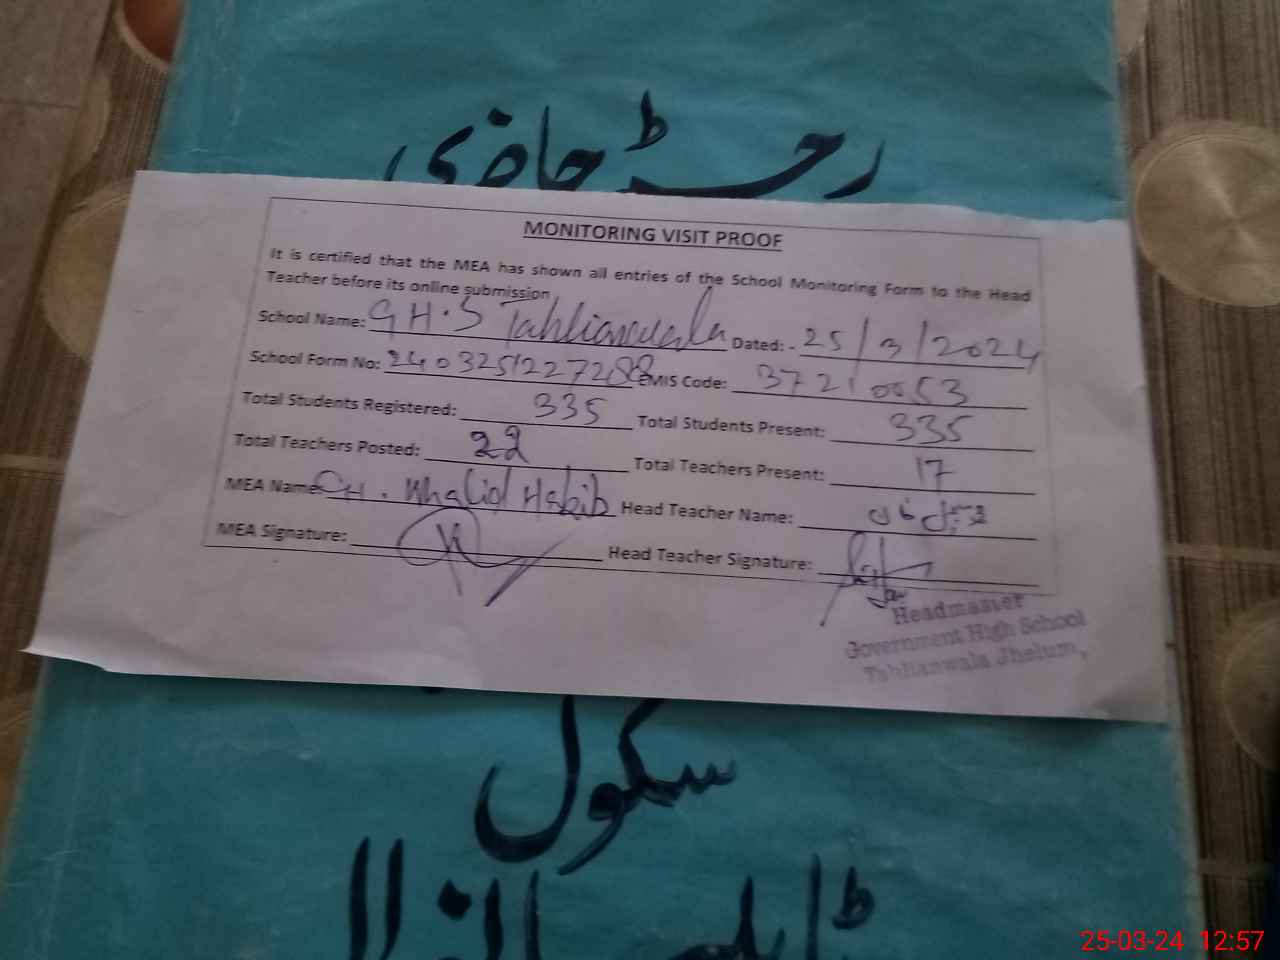 رجسٹر حاضری
MONITORING VISIT PROOF
It is certified that the MEA has shown all entries of the School Monitoring Form to the Head
Teacher before its online submission
School Name: G H.S Tahlianwala Dated: - 25/3/2024
School Form No: 2403251227288 EMIS Code: 37210053
Total Students Registered: 335 Total Students Present: 335
Total Teachers Posted: 22 Total Teachers Present: 17
MEA Name: CH. Khalid Habib Head Teacher Name:
MEA Signature: Head Teacher Signature:
Headmaster
Government High School
Tahlianwala Jhelum,
سکول
25-03-24 12:57